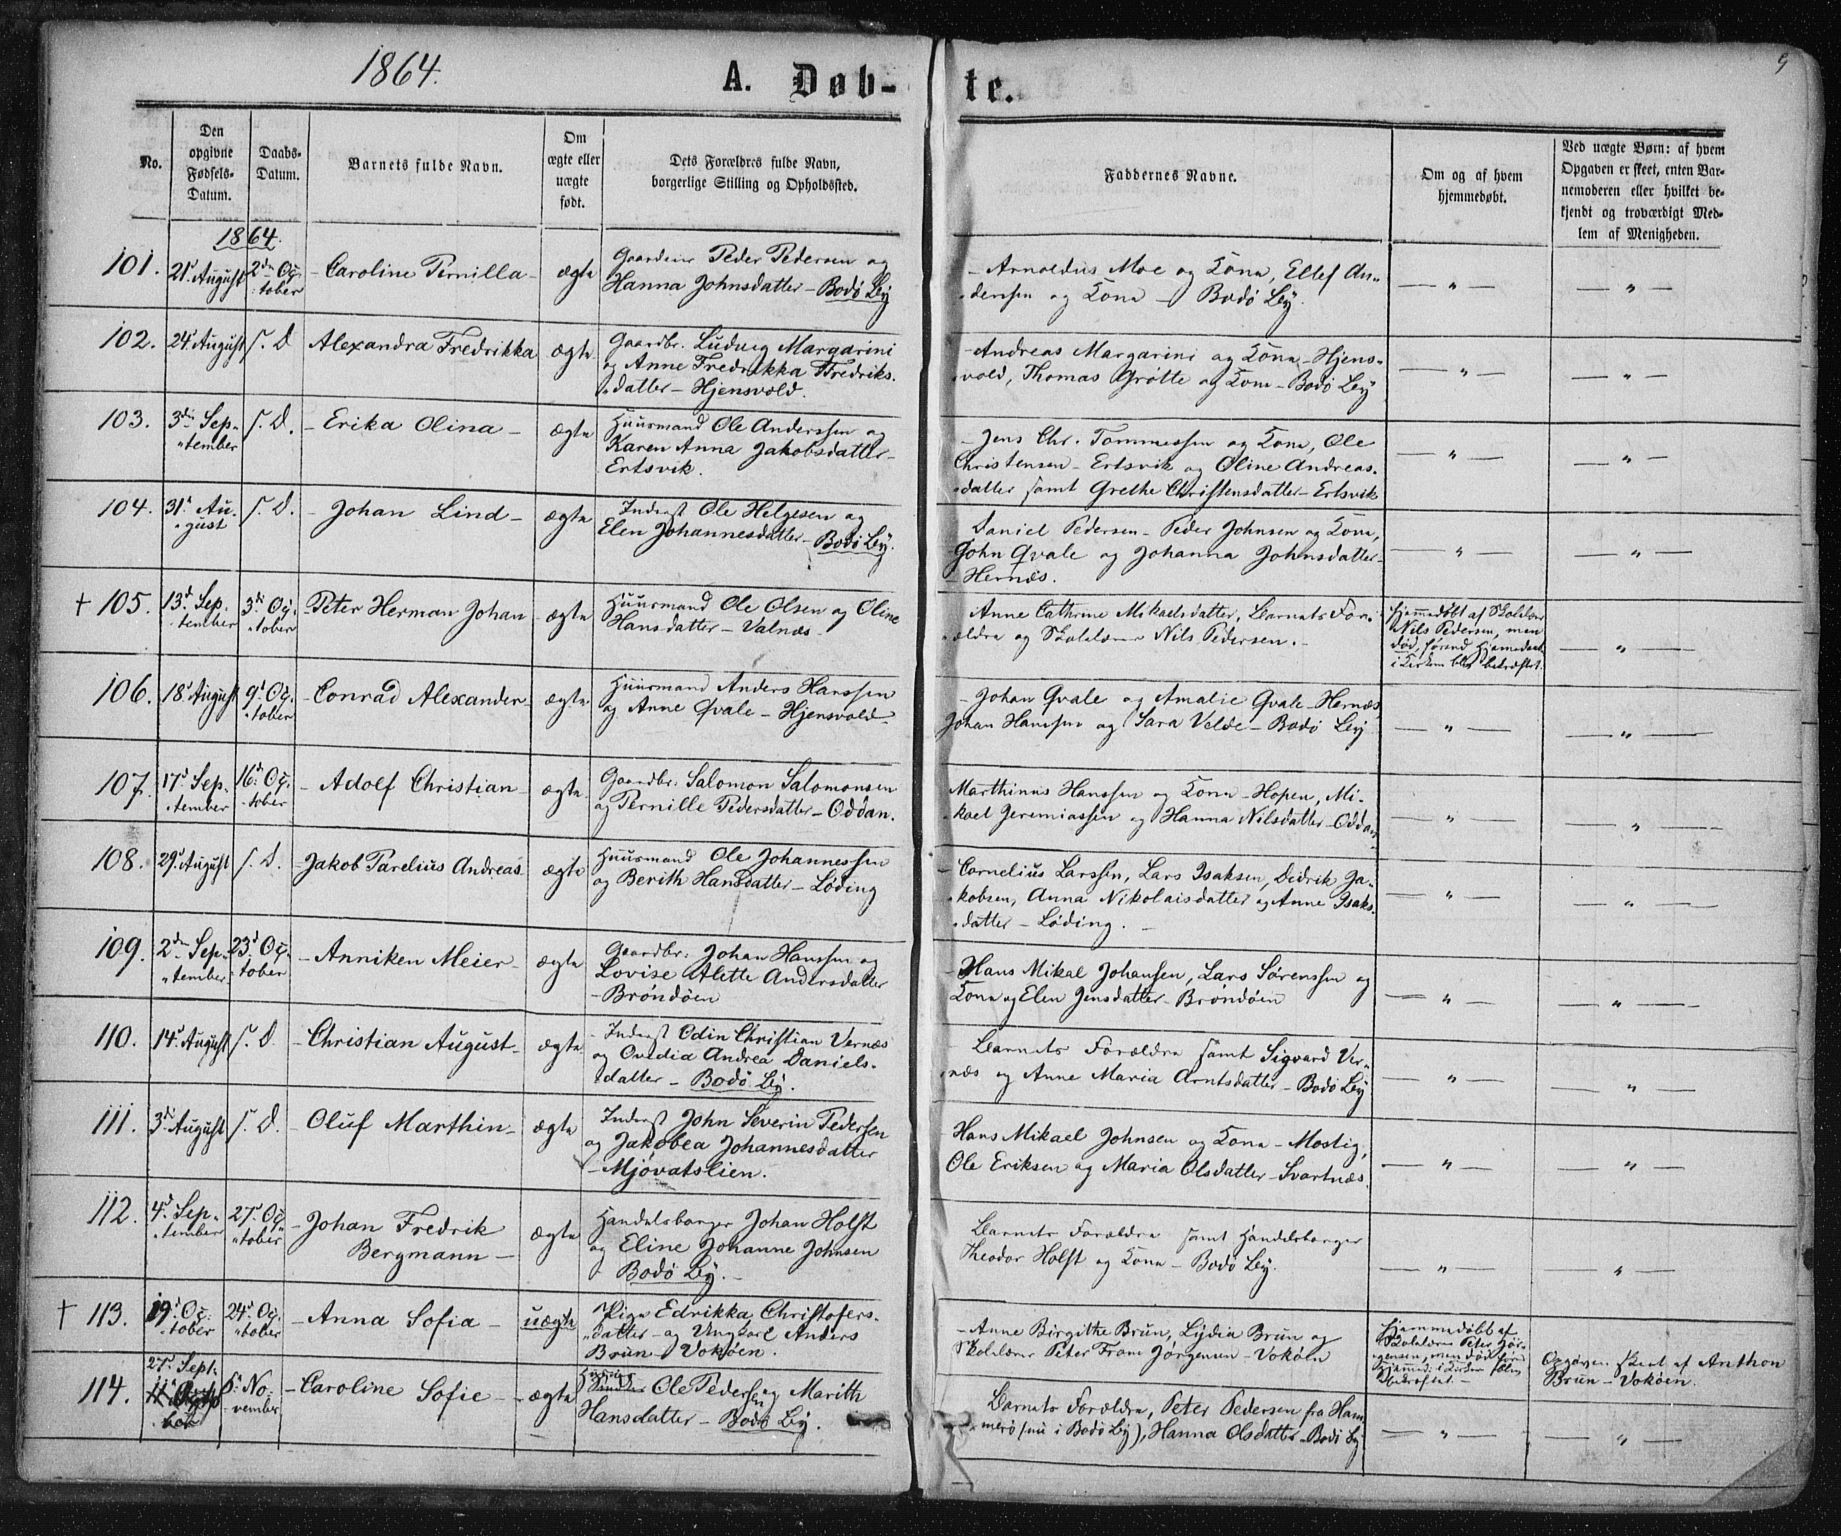 1864.
A. Døb-
te.
9
No.
Den opgivne Fødsels-Datum.
Daabs-Datum.
Barnets fulde Navn.
Om ægte eller uægte født.
Dets Forældres fulde Navn, borgerlige Stilling og Opholdssted.
Faddernes Navne.
Om og af hvem hjemmedøbt.
Ved uægte Børn: af hvem Opgaven er skeet, enten Barnemoderen eller hvilket bekjendt og troværdigt Medlem af Menigheden.
1864.
101. 21' August 2den Oc-tober - Caroline Pernilla - ægte
Gaardeier Peder Pedersen og
Hanna Johnsdatter - Bodö By
- Arnoldus Moe og Kona, Ellef An-
derssen og Kona - Bodö By.
— " — — " —
102. 24' August s. D. Alexandra Fredrikka ægte
Gaardbr. Ludvig Margarini
og Anne Fredrikka Fredriks-
datter - Hjensvold.
- Andreas Margarini og Kona - Hjens-
vold, Thomas Grötte og Kona - Bodö By
— " — — " —
103. 3die Sep-tember s. D. - Erika Olina - ægte
Huusmand Ole Anderssen og
Karen Anna Jakobsdatter -
Ertsvik.
- Jens Chr. Tommessen og Kona, Ole
Christensen - Ertsvik og Oline Andreas-
datter samt Grethe Christensdatter - Ertsvik
— " — — " —
104. 31' Au-gust s. D. - Johan Lind - ægte
Inderst Ole Helgesen og
Elen Johannesdatter - Bodö By.
Daniel Pedersen - Peder Johnsen og Kona,
John Qvale og Johanna Johnsdatter -
- Hernæs.
— " — — " —
† 105. 13d. Sep-tember 3di Oc-tober Peter Herman Johan ægte
Huusmand Ole Olsen og Oline
Hansdatter - Valnæs.
Anne Cathrine Mikaelsdatter, Barnets For-
ældre og Skolelærer Nils Pedersen. -
Hjemmedöbt af Skolelærer
Nils Pedersen, men
död, förend Hjemmedaab
i Kirken blev bekræftet.
— " —
106. 18' August 9d. Oc-tober - Conrad Alexander - ægte
Huusmand Anders Hanssen
og Anne Qvale - Hjensvold
- Johan Qvale og Amalie Qvale - Hernæs
Johan Hanssen og Sara Velde - Bodö By
— " — — " —
107. 17d. Sep-tember 16d. Oc-tober - Adolf Christian - ægte
Gaardbr. Salomon Salomonsen
og Pernille Pedersdatter - Oddan.
Marthinus Hanssen og Kona - Hopen, Mi-
kael Jeremiassen og Hanna Nilsdatter - Oddan
— " — — " —
108. 29' August s. D. Jakob Parelius Andreas ægte
Huusmand Ole Johannessen
og Berith Hansdatter - Löding
- Cornelius Larssen, Lars Isaksen, Didrik Ja-
kobsen, Anna Nikolaisdatter og Anne Isaks-
datter - Löding. -
— " — — " —
109. 2den Sep-tember 23d Oc-tober - Anniken Meier - ægte
Gaardbr. Johan Hanssen og
Lovise Alette Andersdatter
- Bröndöen
- Hans Mikal Johansen, Lars Sörenssen og
Kona og Elen Jensdatter - Bröndöen
— " — — " —
110. 14' August s. D. - Christian August - ægte
Inderst Odin Christian Vernæs
og Ovidia Andrea Daniels-
datter - Bodö By.
- Barnets Forældre samt Sigvard Ver-
næs og Anne Maria Arntsdatter - Bodö By
— " — — " —
111. 3di August s. D. - Oluf Marthin - ægte
Inderst John Severin Pedersen
og Jakobea Johannesdatter
- Mjövatslien.
Hans Mikael Johnsen og Kona - Mostig,
Ole Eriksen og Maria Olsdatter - Svartnæs.
— " — — " —
112. 4d. Sep-tember 27' Oc-tober - Johan Fredrik
Bergmann - ægte
Handelsborger Johan Holst
og Eline Johanne Johnsen
Bodö By. -
Barnets Forældre samt Handelsborger
Theodor Holst og Kona - Bodö By.
— " — — " —
† 113. 19' Oc-tober 24d Oc-tober - Anna Sofia - uægte
Pige Edrikka Christofers-
datter - og Ungkarl Anders
Brun - Voköen.
- Anne Birgithe Brun, Lydia Brun og
Skolelærer Peter From Jörgensen - Voköen
Hjemmedöbt af
Skolelærer Peter Jör-
gensen, men död för
Hjemmed. i Kirken blev
bekræftet -
Opgaven skeet af Anthon
Brun - Voköen.
114. 27' Sept. 6' No-vember - Caroline Sofie - ægte
Ole Pedersen og Marith
Hansdatter - Bodö By.
Barnets Forældre, Peter Pedersen fra Ham-
merö (nu i Bodö By), Hanna Olsdatter - Bodö By
— " — — " —